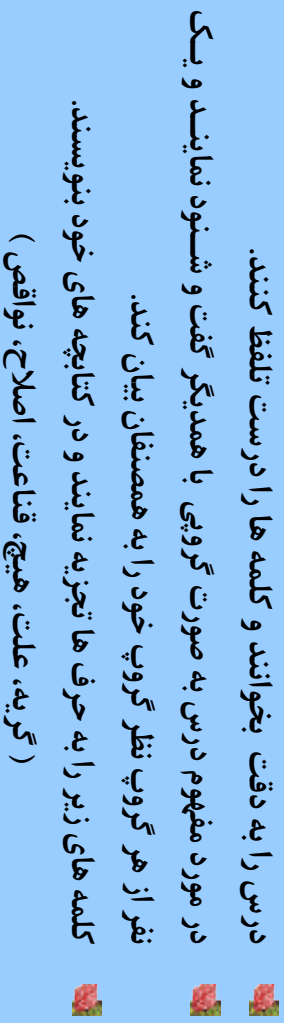 درس را به دقت بخوانند و کلمه ها را درست تلفظ کنند.
در مورد مفهوم درس به صورت گروپی با همدیگر گفت و شـنود نماینـد و یـک
نفر از هر گروپ نظر گروپ خود را به همصنفان بیان کند.
کلمه های زیر را به حرف ها تجزیه نمایند و در کتابچه های خود بنویسند.
(گریه، علت، هیچ، قناعت، اصلاح، نواقص )